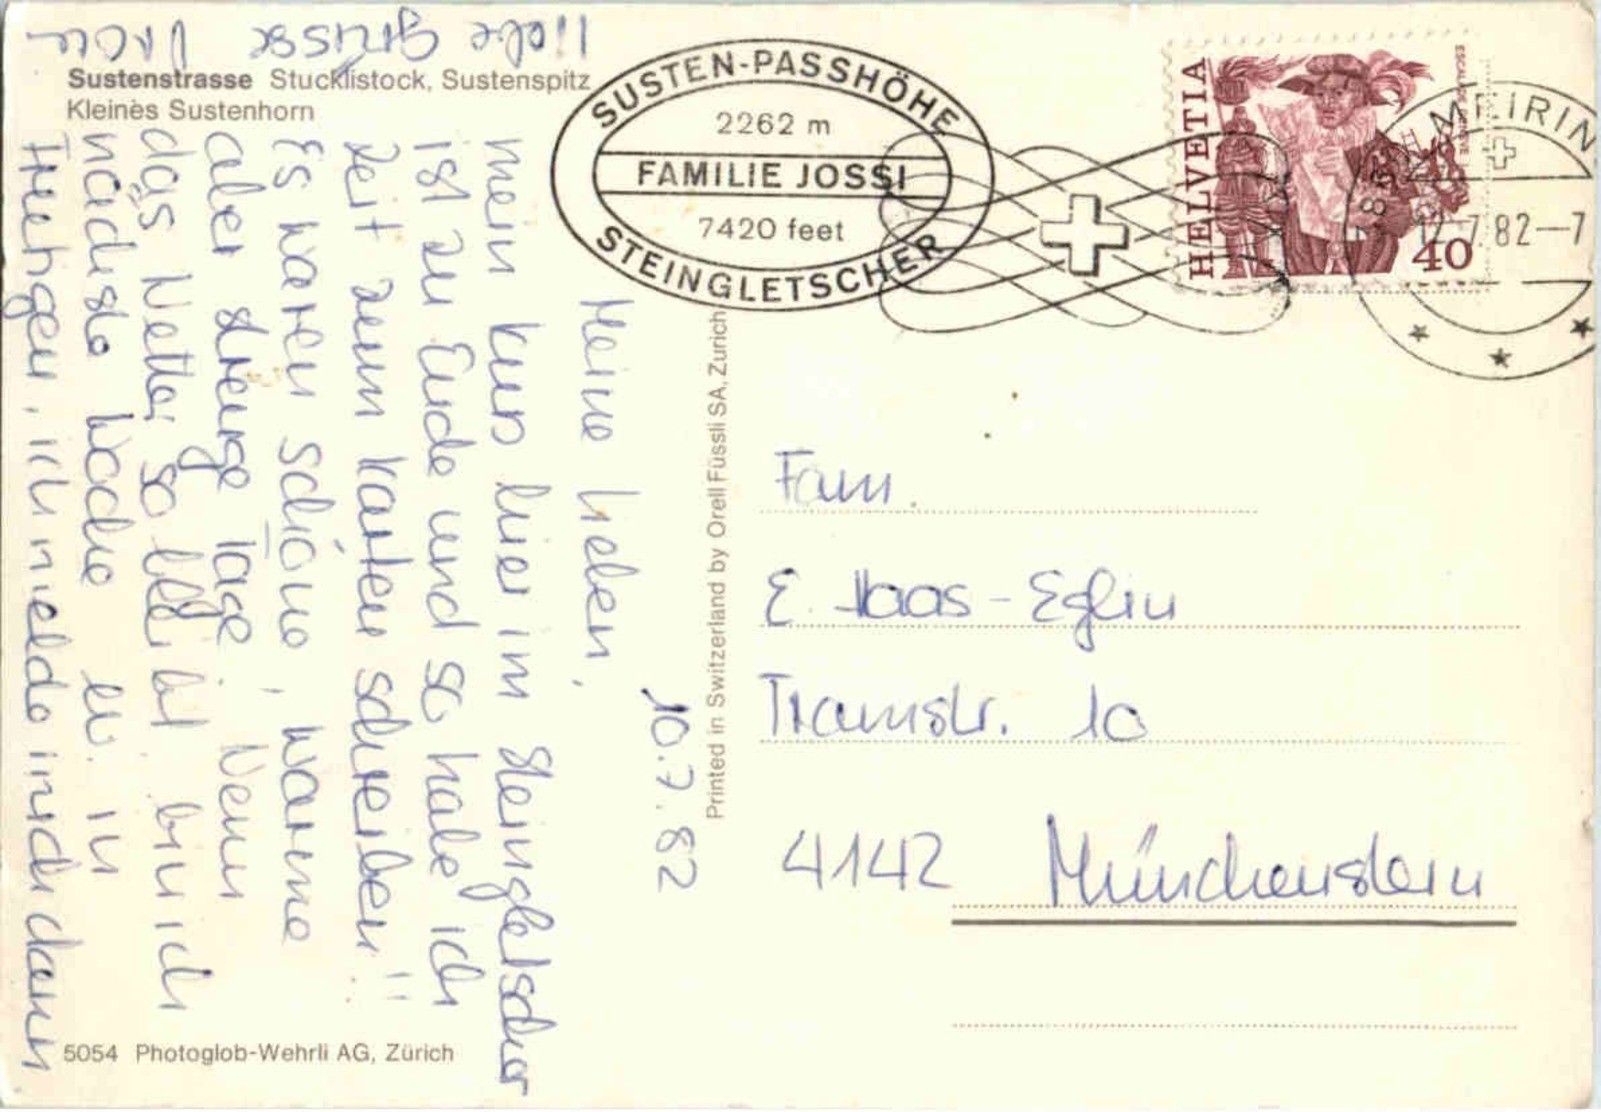 Sustenstrasse Stucklistock, Sustenspitz
Kleines Sustenhorn
SUSTEN-PASSHÖHE
2262 m
FAMILIE JOSSI
7420 feet
STEINGLETSCHER
HELVETIA
40
MEIRIN
12.7.82-7
10.7.82
Meine Lieben,
mein Kurs hier im Steingletscher
ist zu Ende und so habe ich
Zeit zum Karten schreiben!!
Es waren schöne, warme
aber strenge Tage. Wenn
das Wetter so bleibt bin ich
nächste Woche ev. in
ich melde mich dann.
liebe Grüsse
Fam.
E. Haas-Eglin
Tramstr. 10
4142 Münchenstein
Printed in Switzerland by Orell Füssli SA, Zürich
5054 Photoglob-Wehrli AG, Zürich